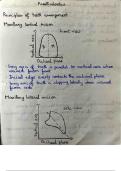 Prosthodontics
Principles of teeth arrangement
Maxillary central incisor
front view
Vertical axis
Occlusal plane
Long axis of tooth is parallel to vertical axis when viewed from front
Incisal edge evenly contacts the occlusal plane
Long axis of tooth is sloping labially when viewed from side
Maxillary lateral incisor
Vertical axis
Occlusal plane